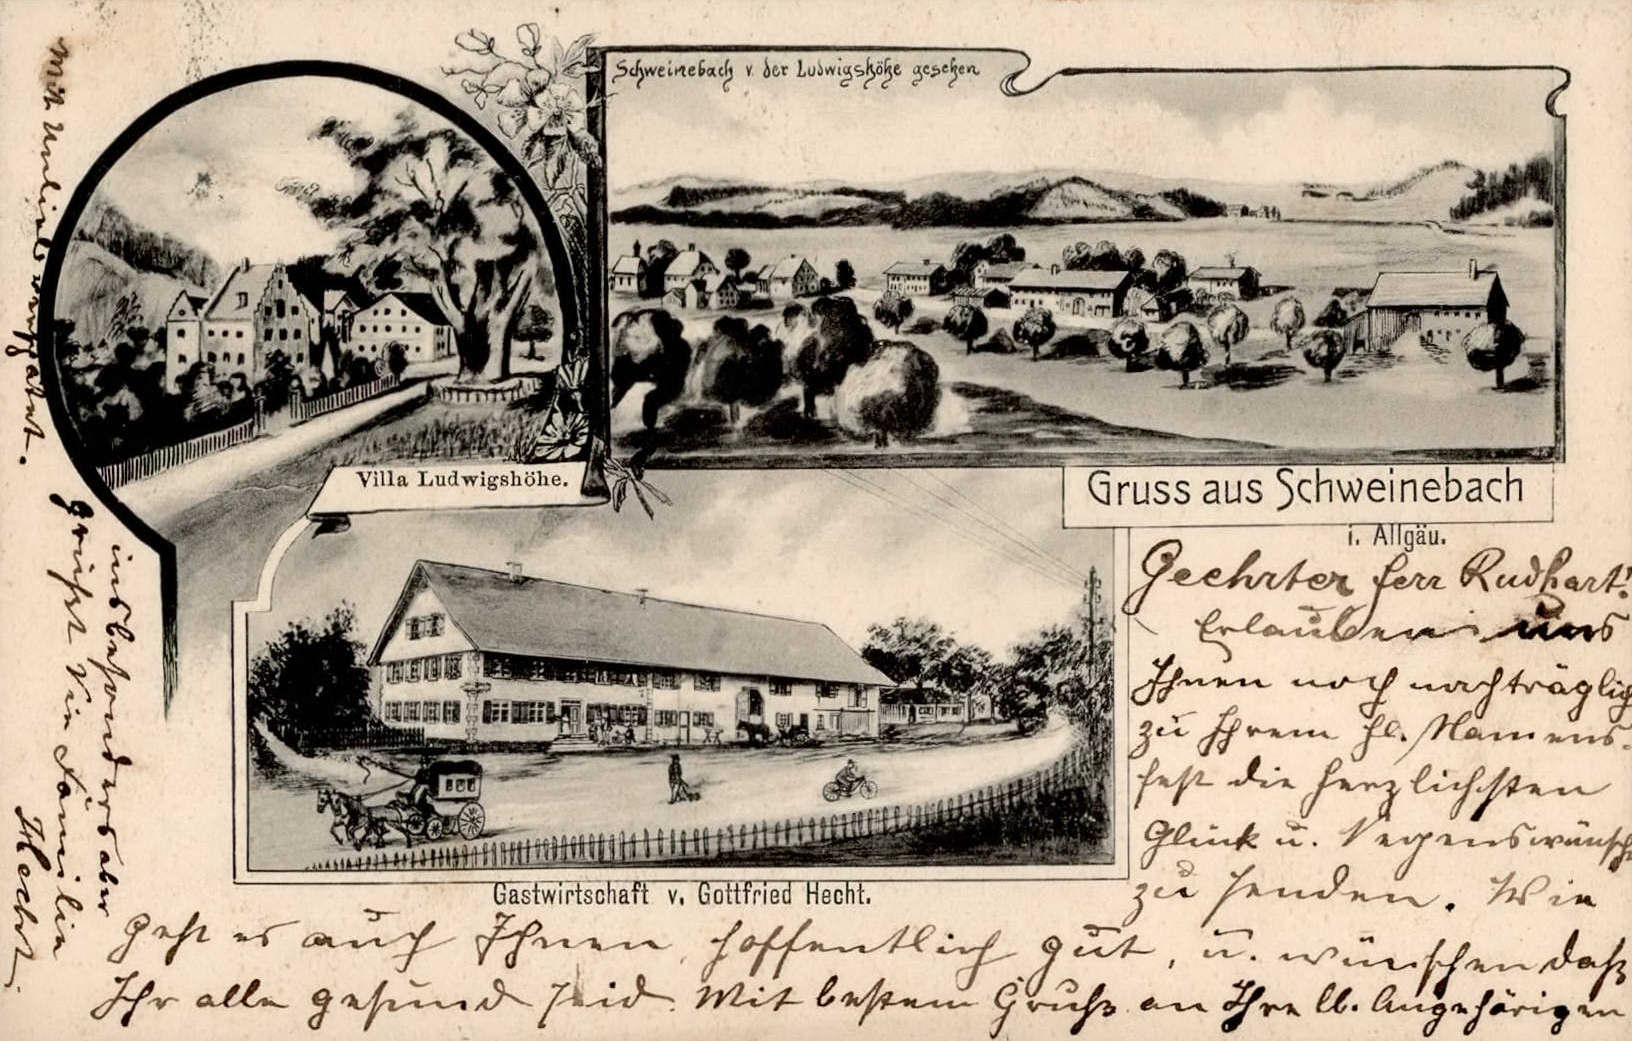 Schweinebach v. der Ludwigshöhe gesehen
Villa Ludwigshöhe.
Gruss aus Schweinebach
i. Allgäu.
Gastwirtschaft v. Gottfried Hecht.
Geehrter Herr Rudhart!
Erlauben uns
Ihnen noch nachträglich
zu Ihrem hl. Namens-
fest die herzlichsten
Glück u. Segenswünsche
zu senden. Wie
geht es auch Ihnen, hoffentlich gut, u. wünschen daß
Ihr alle gesund seid. Mit bestem Gruß an Ihre lb. Angehörigen
insbesonders aber
grüßt Sie Familie
Hecht.